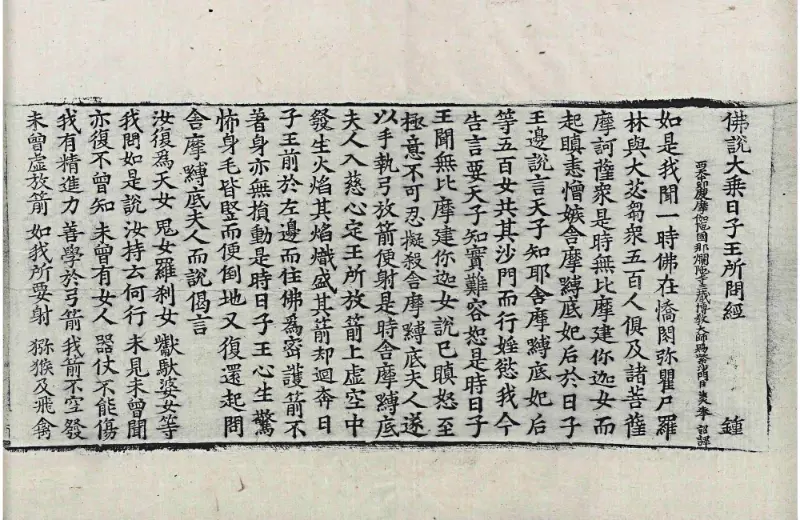 佛說大乘日子王所問經 鍾
西天中印度摩伽陀國那爛陀寺三藏傳教大師賜紫沙門臣法天奉 詔譯
如是我聞一時佛在憍閦弥瞿尸羅
林與大苾芻衆五百人俱及諸菩薩
摩訶薩衆是時無比摩建你迦女而
起瞋恚憎嫉舍摩䩛底妃后於日子
王邊說言天子知耶舍摩䩛底妃后
等五百女共其沙門而行婬慾我今
告言要天子知實難容恕是時日子
王聞無比摩建你迦女說已瞋怒至
極意不可忍擬殺舍摩䩛底夫人遂
以手執弓放箭便射是時舍摩䩛底
夫人入慈心定王所放箭上虛空中
發生火焰其焰熾盛其箭却迴奔日
子王前於左邊而住佛爲密護箭不
著身亦無損動是時日子王心生驚
怖身毛皆竪而便倒地又復還起問
舍摩䩛底夫人而說偈言
汝復爲天女 鬼女羅剎女 巘馱婆女等
我問如是說 汝持云何行 未見未曾聞
亦復不曾知 未曾有女人 器仗不能傷
我有精進力 善學於弓箭 我箭不空發
未曾虛放箭 如我所要射 獼猴及飛禽